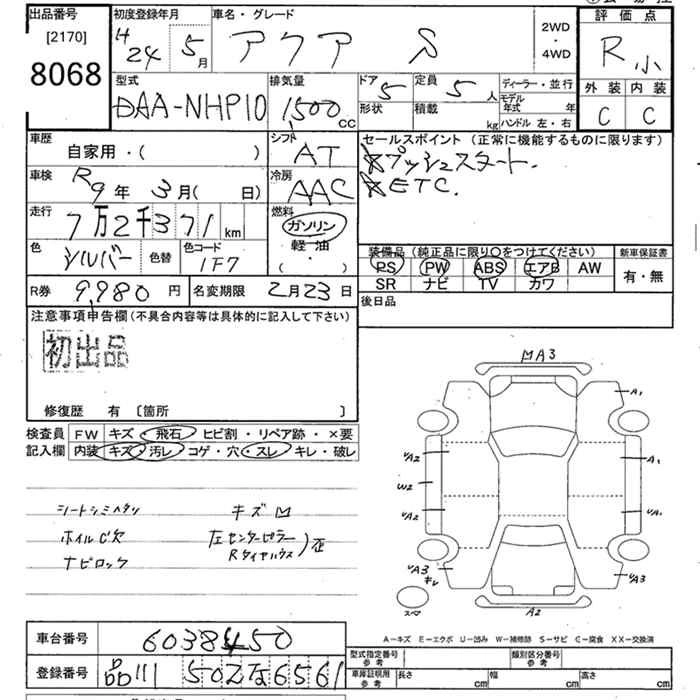 出品番号 初度登録年月 車名・グレード 評価点
[2170] H 24年 5月 アクア S 2WD・4WD R 小
8068
型式 排気量 ドア 5 定員 5人 ディーラー・並行 外装 内装
DAA-NHP10 1,500 CC 形状 積載 kg モデル年式 年 C C
ハンドル 左・右
車歴 シフト セールスポイント (正常に機能するものに限ります)
自家用・( ) AT ☆プッシュスタート.
車検 R9年 3月( 日) 冷房 AAC ☆ETC.
走行 7万2千371 km 燃料 ガソリン
軽油
( ・ )
色 シルバー 色替 色コード 1F7
装備品 (純正品に限り○をつけてください) 新車保証書
PS PW ABS エアB AW 有・無
SR ナビ TV カワ
R券 9,980円 名変期限 2月23日 後日品
注意事項申告欄 (不具合内容等は具体的に記入して下さい)
初出品
修復歴 有 〔箇所 〕
検査員 FW キズ・飛石・ヒビ割・リペア跡・×要
記入欄 内装 キズ・汚レ・コゲ・穴・スレ・キレ・破レ
シートシミヘタリ キズ
ホイルC欠 左センターピラー
ナビロック Rタイヤハウス
MA3
A1
UA2 A1
W2
UA2 UA1
UA3 キレ UA3
スペア A2
A-キズ E-エクボ U-凹み W-補修跡 S-サビ C-腐食 XX-交換済
車台番号 6038450
登録番号 品川 502 な 6561
型式指定番号 参考 類別区分番号 参考
車庫証明用 参考 長さ cm 幅 cm 高さ cm